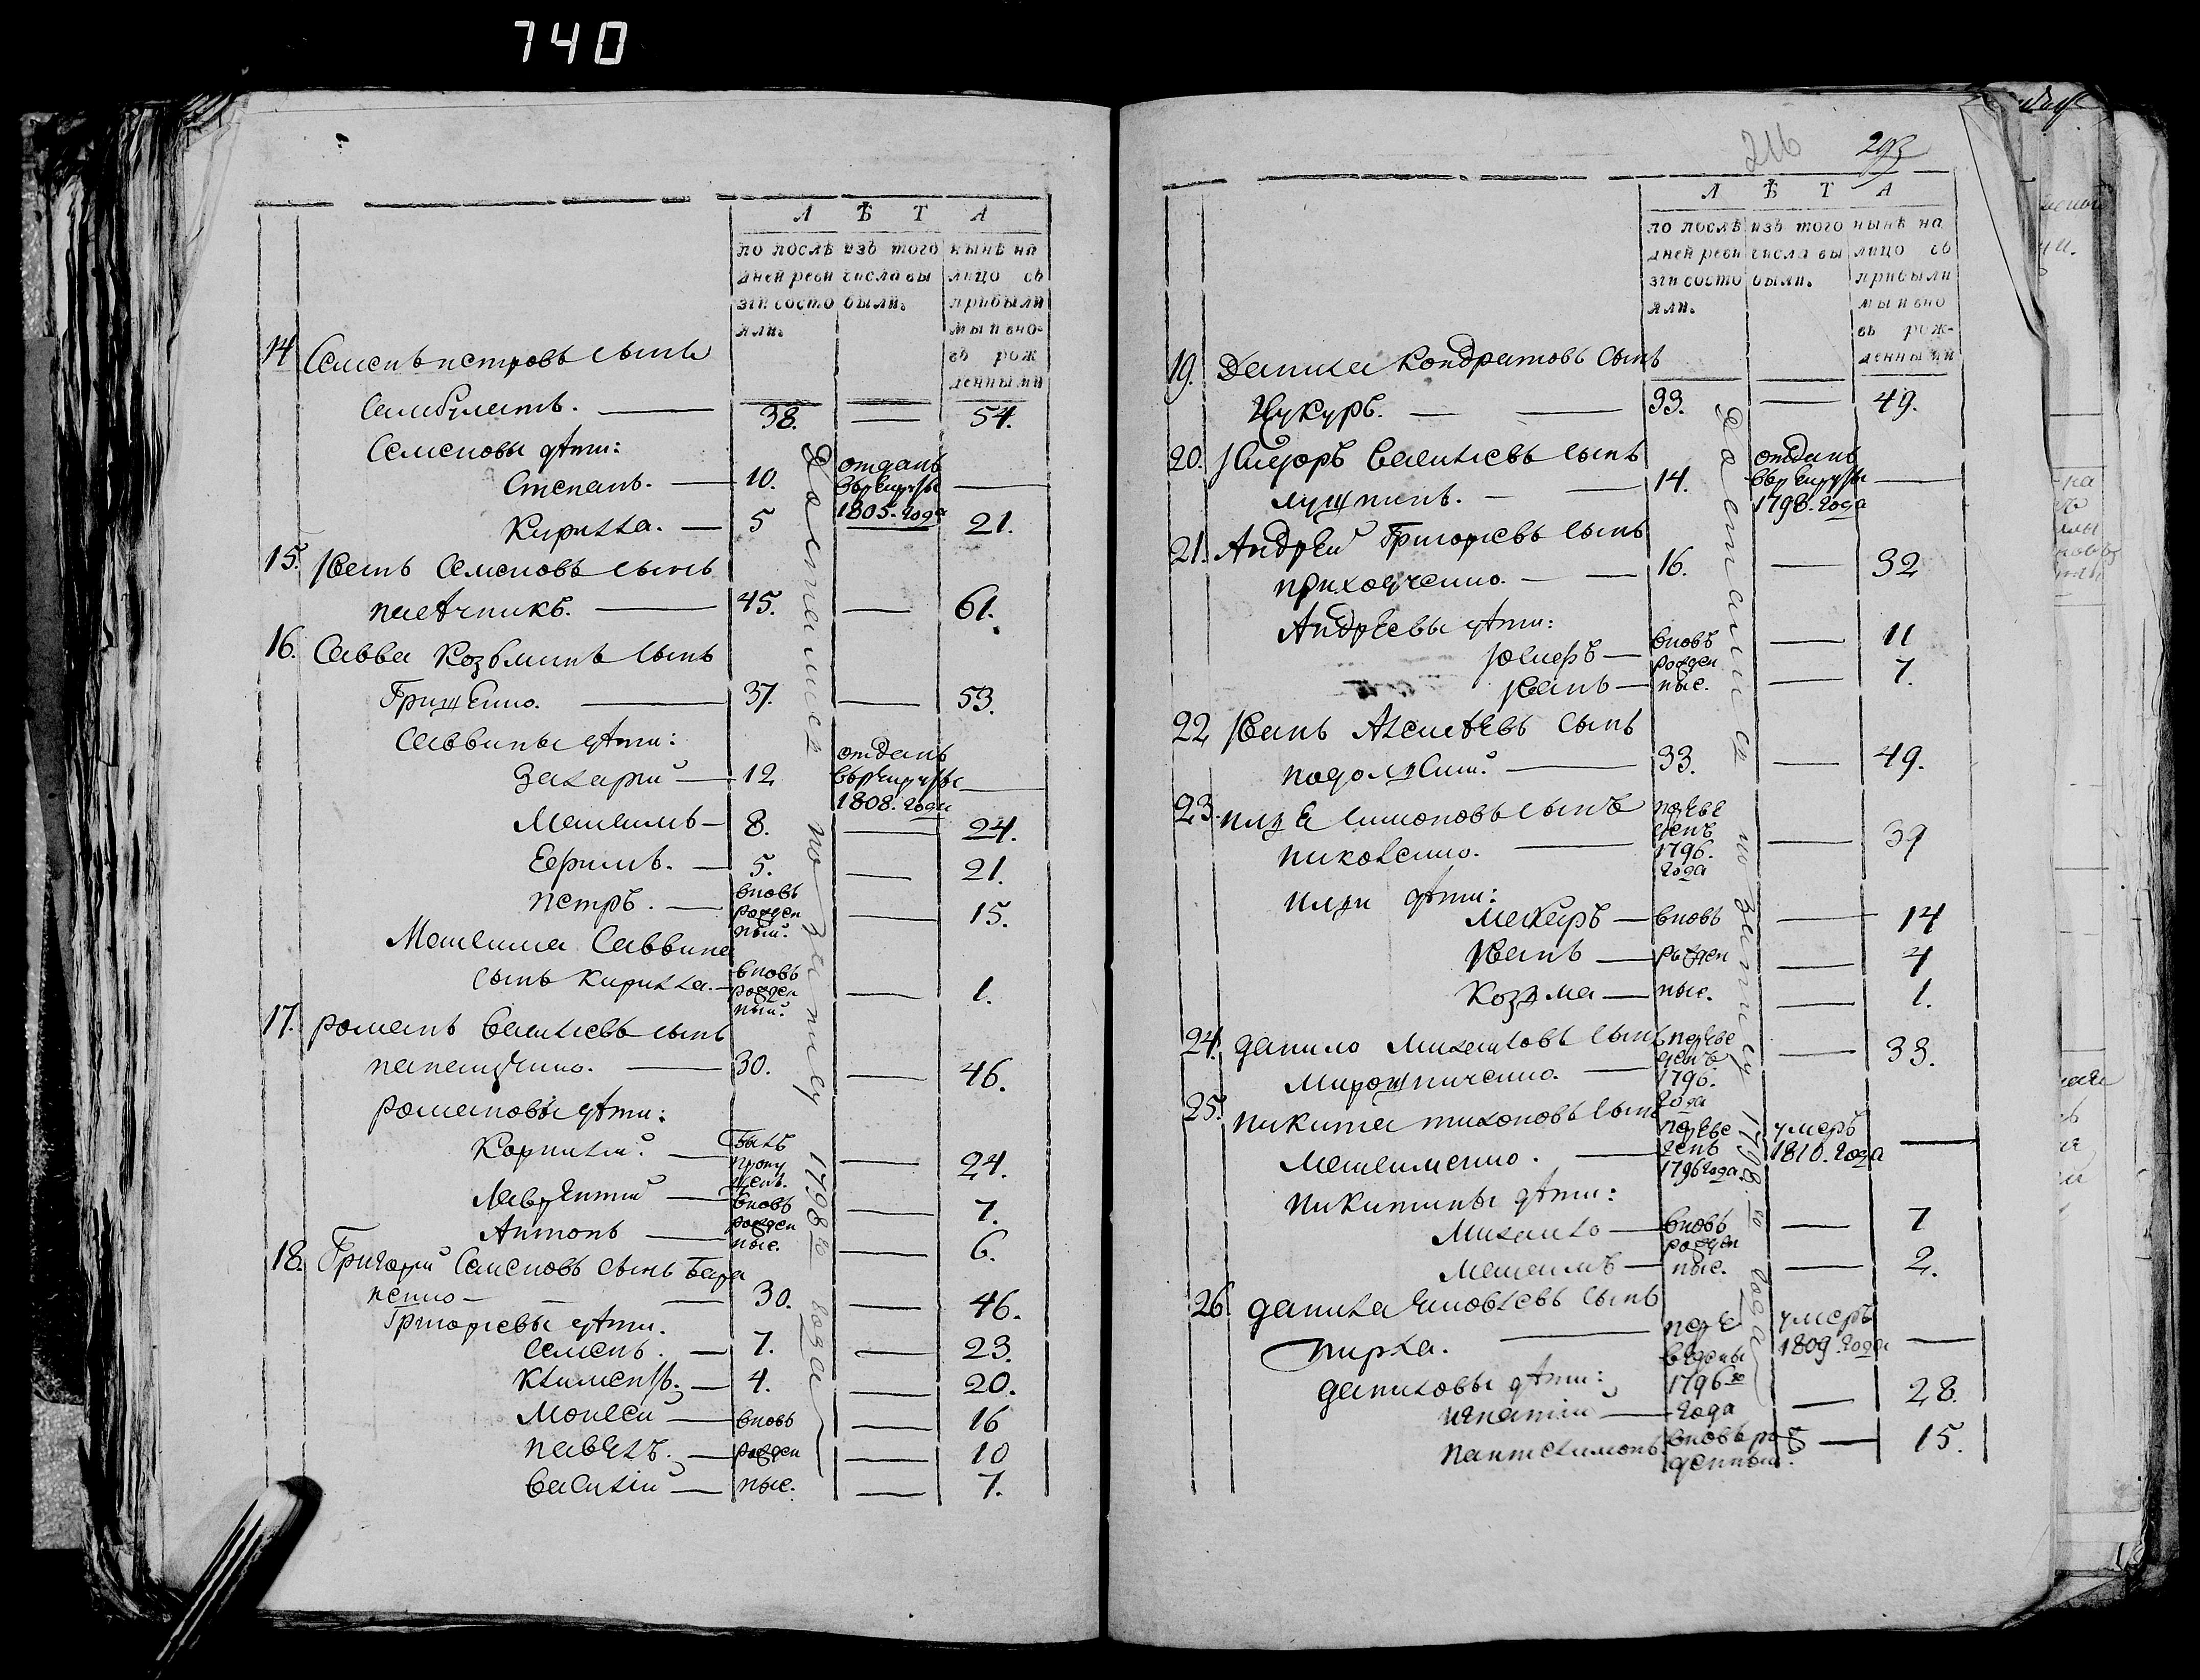 740
Л Ѣ Т А
по послѣ
дней реви
зіи состо
яли.
изъ того
числа вы
были.
нынѣ на
лицо съ
прибылы
ми и вно
въ рож
денными
14 Семенъ петровъ сынъ
38. 54.
Семеновы дѣти:
Степанъ. 10. отданъ
врекруты
1805. года
Кирилла. 5 21.
15. Иванъ Семеновъ сынъ
пасѣчникъ. 45. 61.
16. Савва Козьминъ сынъ
Грищенко. 37. 53.
Саввины дѣти:
Захарий 12 отданъ
врекруты
1808. года
Максимъ 8. 24.
Ефимъ. 5. 21.
петръ. вновь
рожден
ный. 15.
Максима Саввина
сынъ Кирилла. вновь
рожден
ный. 1.
17. романъ васильевъ сынъ
30. 46.
романовы дѣти:
Корнилий. былъ
пропу
щенъ. 24.
Лаврентий вновь 7.
Антонъ рожден
ные. 6.
18. Григорий Семеновъ сынъ Бара
ненко 30. 46.
Григорьевы дѣти.
Семенъ. 7. 23.
Климентъ. 4. 20.
Моисей вновь 16
павелъ. рожден 10
василий ные. 7.
Достались по запису 1798го года
216
293
Л Ѣ Т А
по послѣ
дней реви
зіи состо
яли.
изъ того
числа вы
были.
нынѣ на
лицо съ
прибылы
ми и вно
въ рож-
денными
19. Данила Кондратовъ сынъ
Цукуръ. 33. 49.
20. васильевъ сынъ
лущпенъ. 14. отданъ
врекруты
1798. года
21. Андрей Григорьевъ сынъ
приходченко. 16. 32
Андреевы дѣти:
вновь 11
Иванъ рожден
ные. 7.
22 Иванъ Алексѣевъ сынъ
подольский. 33. 49.
23. илья симоновъ сынъ переве
денъ
1796.
года
николенко. 39
ильи дѣти:
Макаръ вновь 14
Иванъ рожден 4
Козьма ные. 1.
24. данило михайловъ сынъ переве
денъ
1796.
года
мирошниченко. 33.
25. никита тихоновъ сынъ переве
денъ
1796 года
умеръ
1810. года
максименко.
никитины дѣти:
Михайло вновь 7
рожден
максимъ ные. 2.
26. данила яковлевъ сынъ
пирха. пере
ведены
1796го
года
умеръ
1809. года
даниловы дѣти:
игнатий 28.
пантелимонъ вновь рож
денный. 15.
Достались по запису 1798.го года